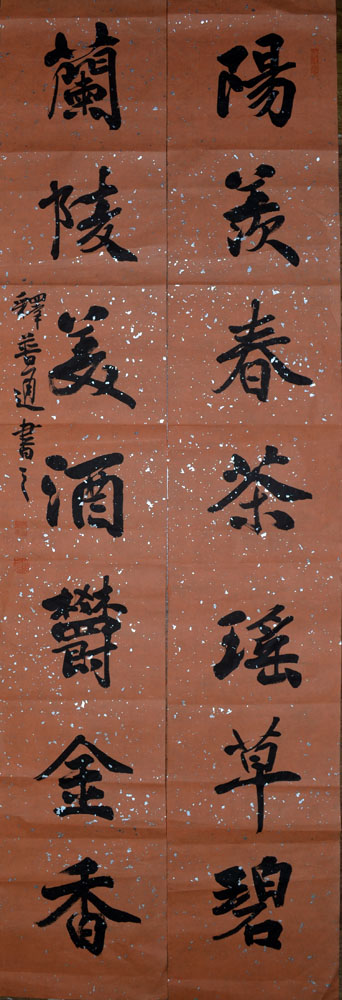 陽羨春茶瑤草碧
蘭陵美酒欝金香
釋普通書之